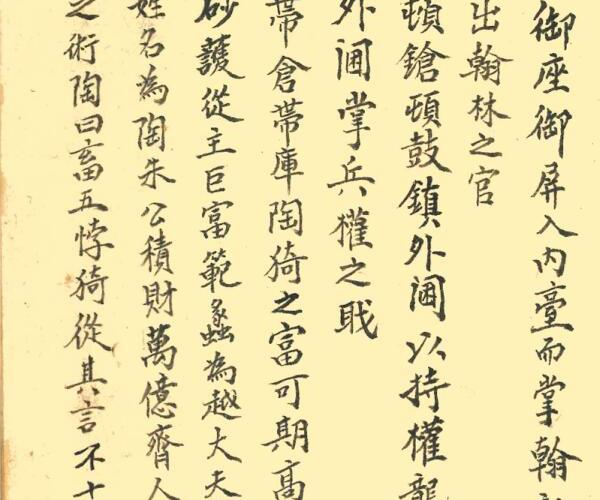 御座御屏入內臺而掌翰
出翰林之官
頓鎗頓鼓鎮外閫以持權龍
外閫掌兵權之職
帶倉帶庫陶猗之富可期高
砂護從主巨富範蠡為越大夫
姓名為陶朱公積財萬億齊人
之術陶曰畜五悖猗從其言不十